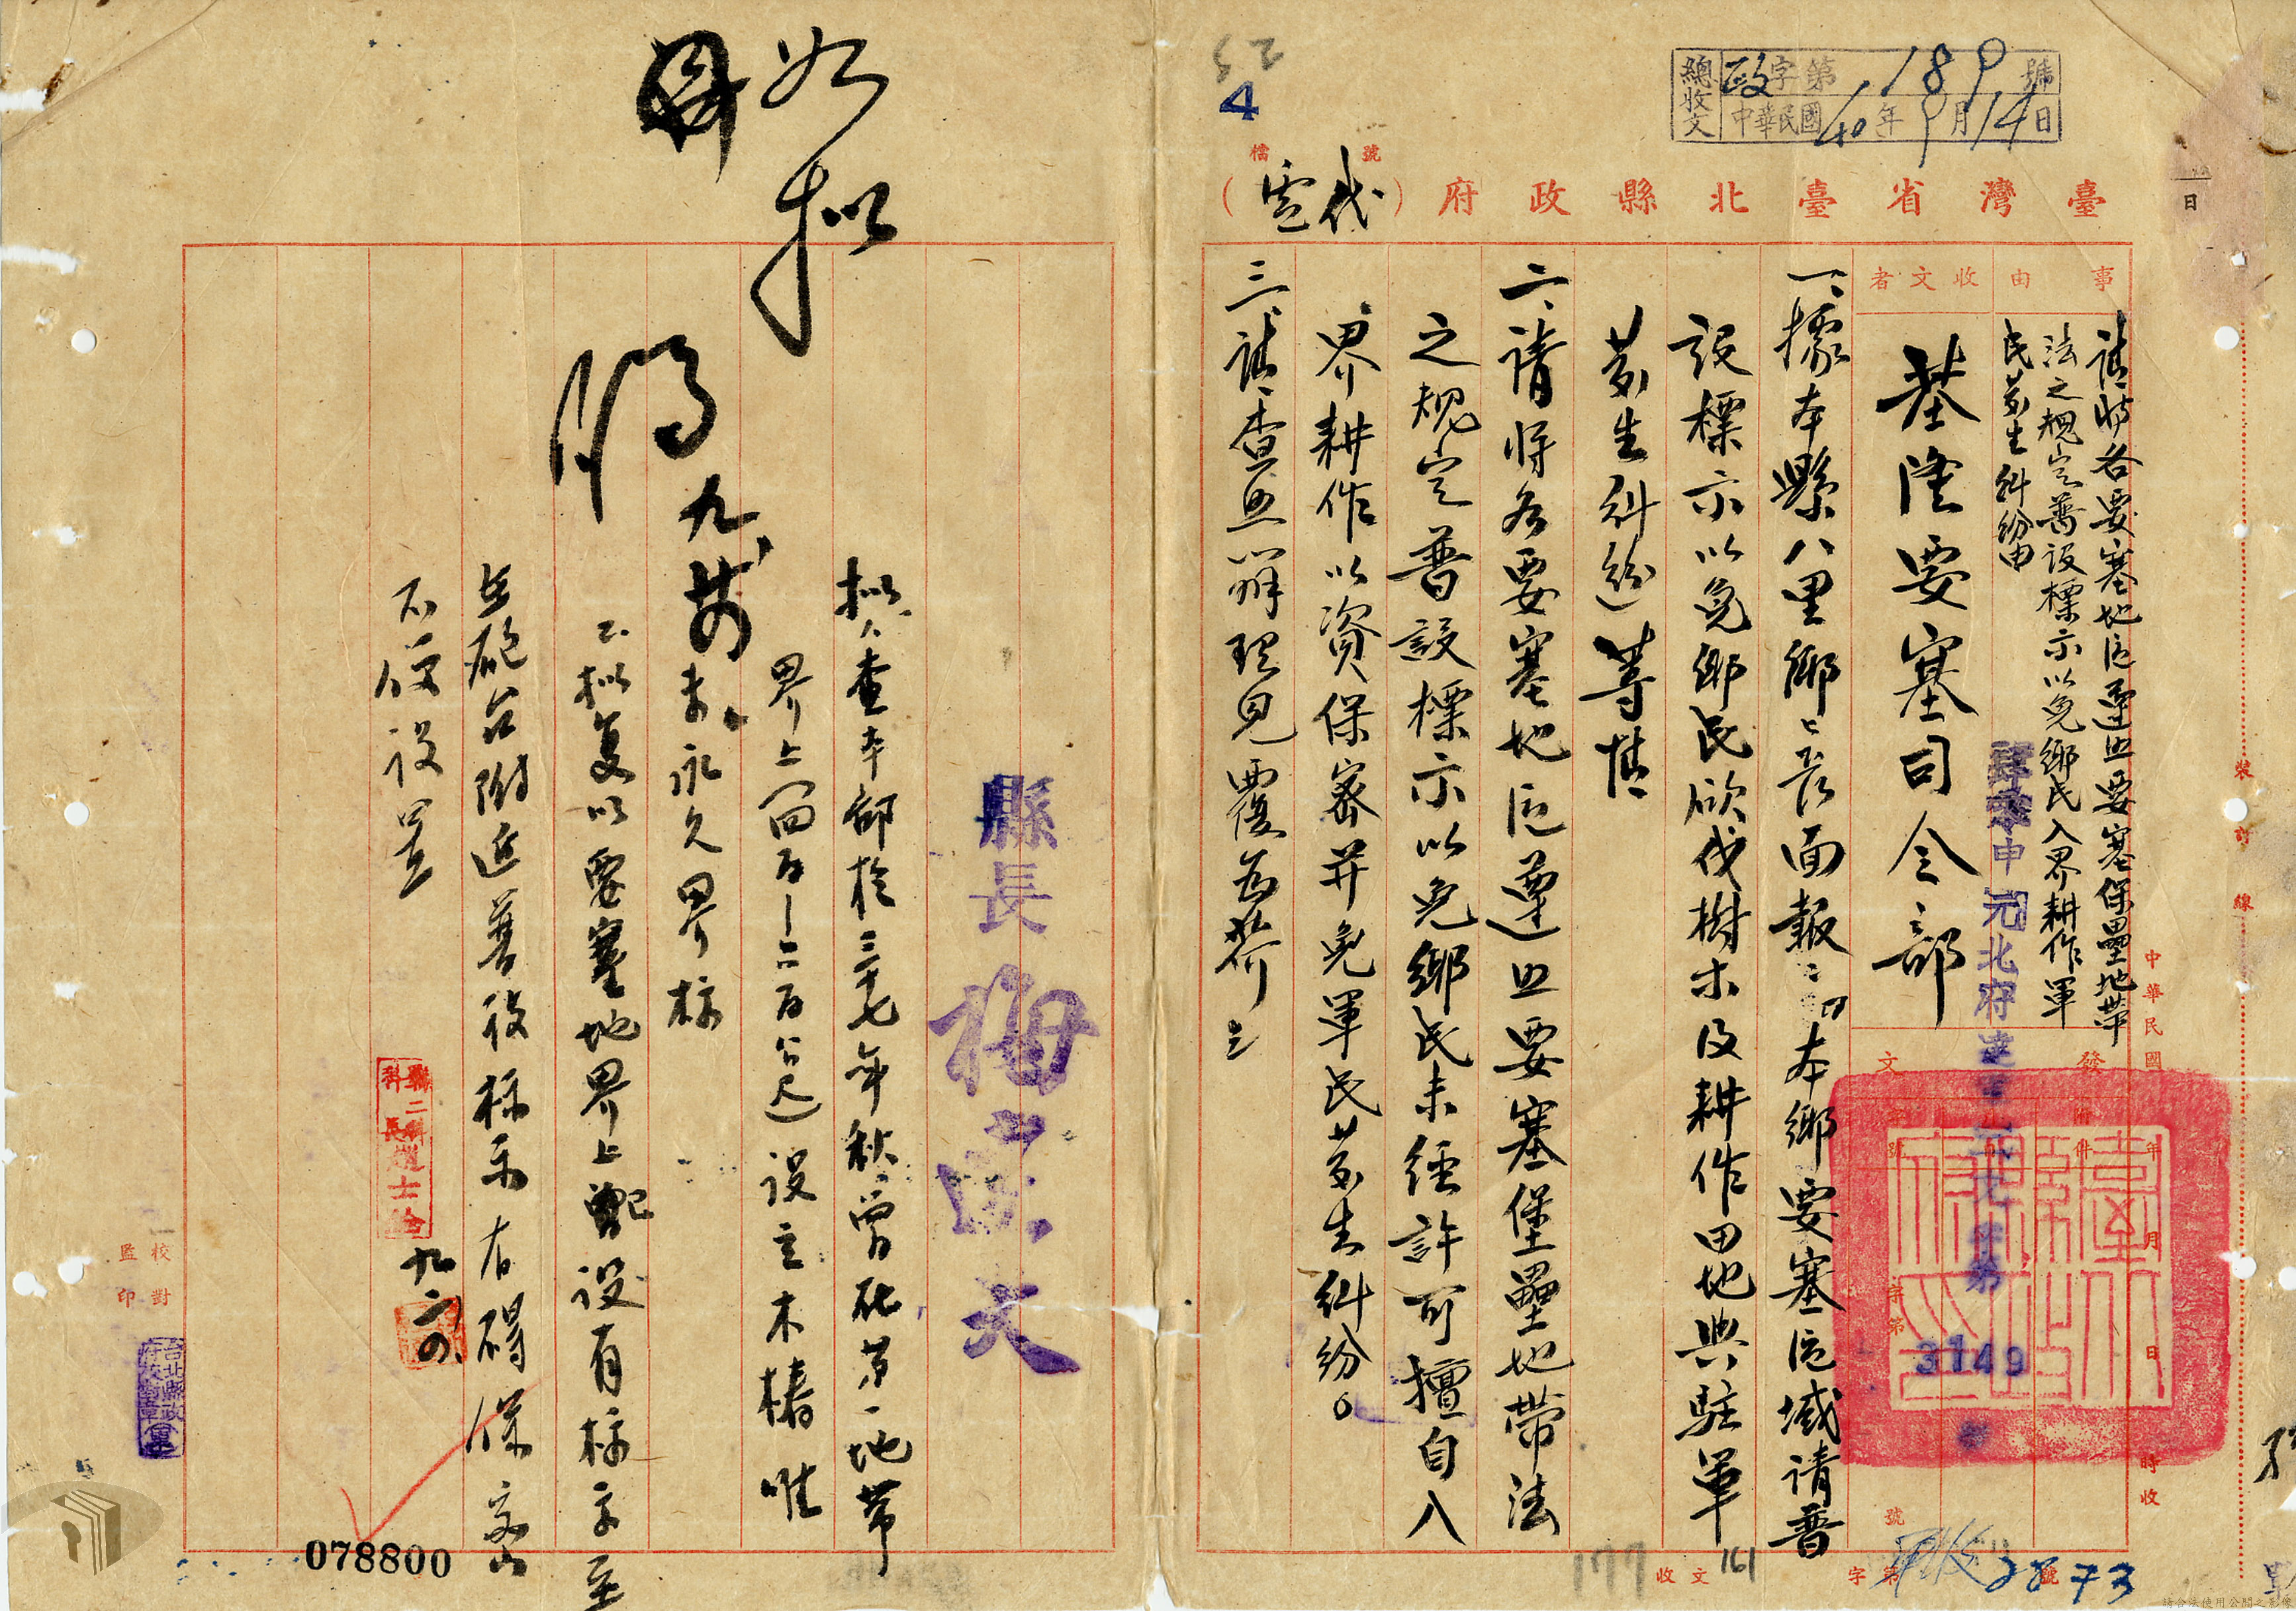 總收文 政字第189號
中華民國40年9月14日
4
檔號
臺灣省臺北縣政府（代電）
事由
請將各要塞地區遵照要塞保壘地帶
法之規定普設標示以免鄉民入界耕作軍
民發生糾紛由
收文者
基隆要塞司令部
發文
附件
中華民國 年 月 日 時收
字第 號
申元北府
3149
一、據本縣八里鄉鄉長面報：「本鄉要塞區域請普
設標示以免鄉民砍伐樹木及耕作田地與駐軍
發生糾紛等情
二、請將各要塞地區遵照要塞堡壘地帶法
之規定普設標示以免鄉民未經許可擅自入
界耕作以資保密并免軍民發生糾紛。
三、請查照辦理見覆為荷
縣長 梅達夫
如擬
九
擬：1.查本部於三十七年秋曾在第一地帶
界上四百-六百公尺設立木樁唯
未永久界標
2.擬復以要塞地界上已設有標示至
在砲台附近普設標示有碍保密
不便設置
九、六
校對
監印
裝訂線
收文
161
177
字第 號
2873
078800
請合法使用公開之影像